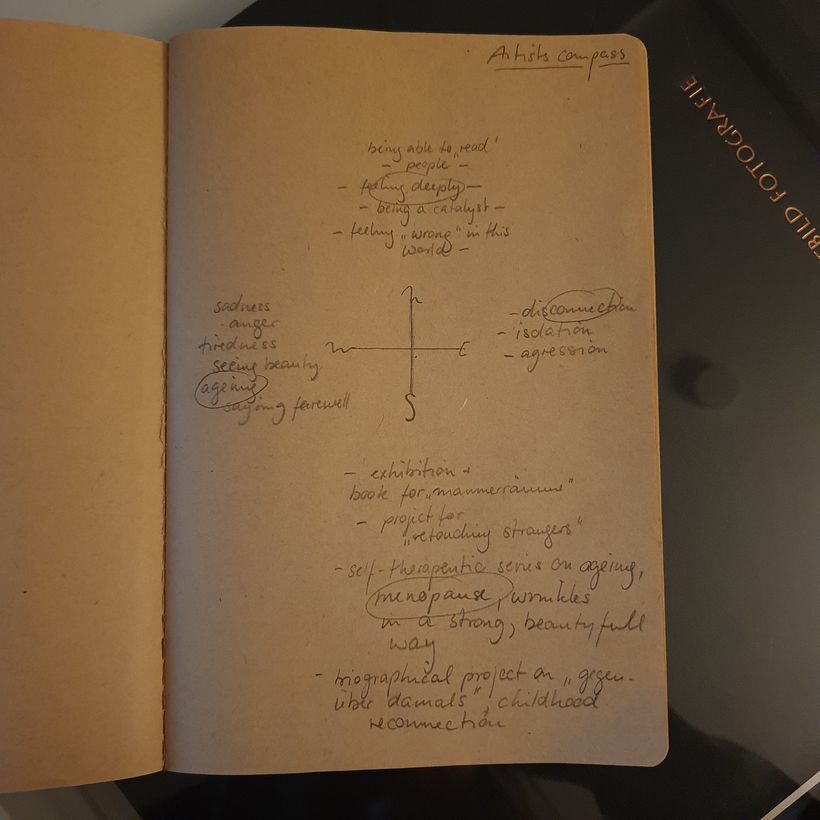 Artists compass
being able to „read"
- people -
- feeling deeply -
- being a catalyst -
- feeling „wrong" in this
world -
N
W
E
S
sadness
anger
tiredness
seeing beauty
ageing
saying farewell
- disconnection
- isolation
- agression
- exhibition +
book for „männerräume"
- project for
„retouching strangers"
- self-therapeutic series on ageing,
menopause, wrinkles
in a strong, beautyfull
way
- biographical project on „gegen-
über damals", childhood
reconnection
BILD FOTOGRAFIE